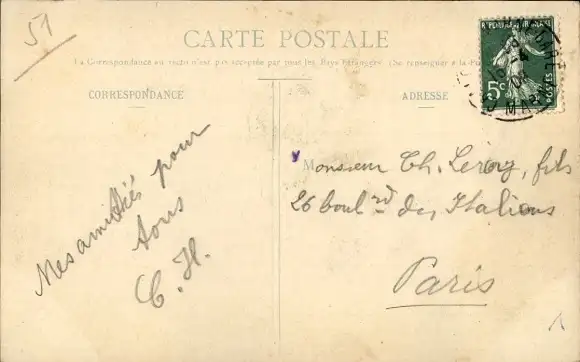 51
CARTE POSTALE
La Correspondance au recto n'est pas acceptée par tous les Pays Étrangers (Se renseigner à la
CORRESPONDANCE
ADRESSE
5c
POSTES
Mes amitiés pour
tous
C. H.
Monsieur Ch. Leroy, fils
26 boulrd des Italiens
Paris